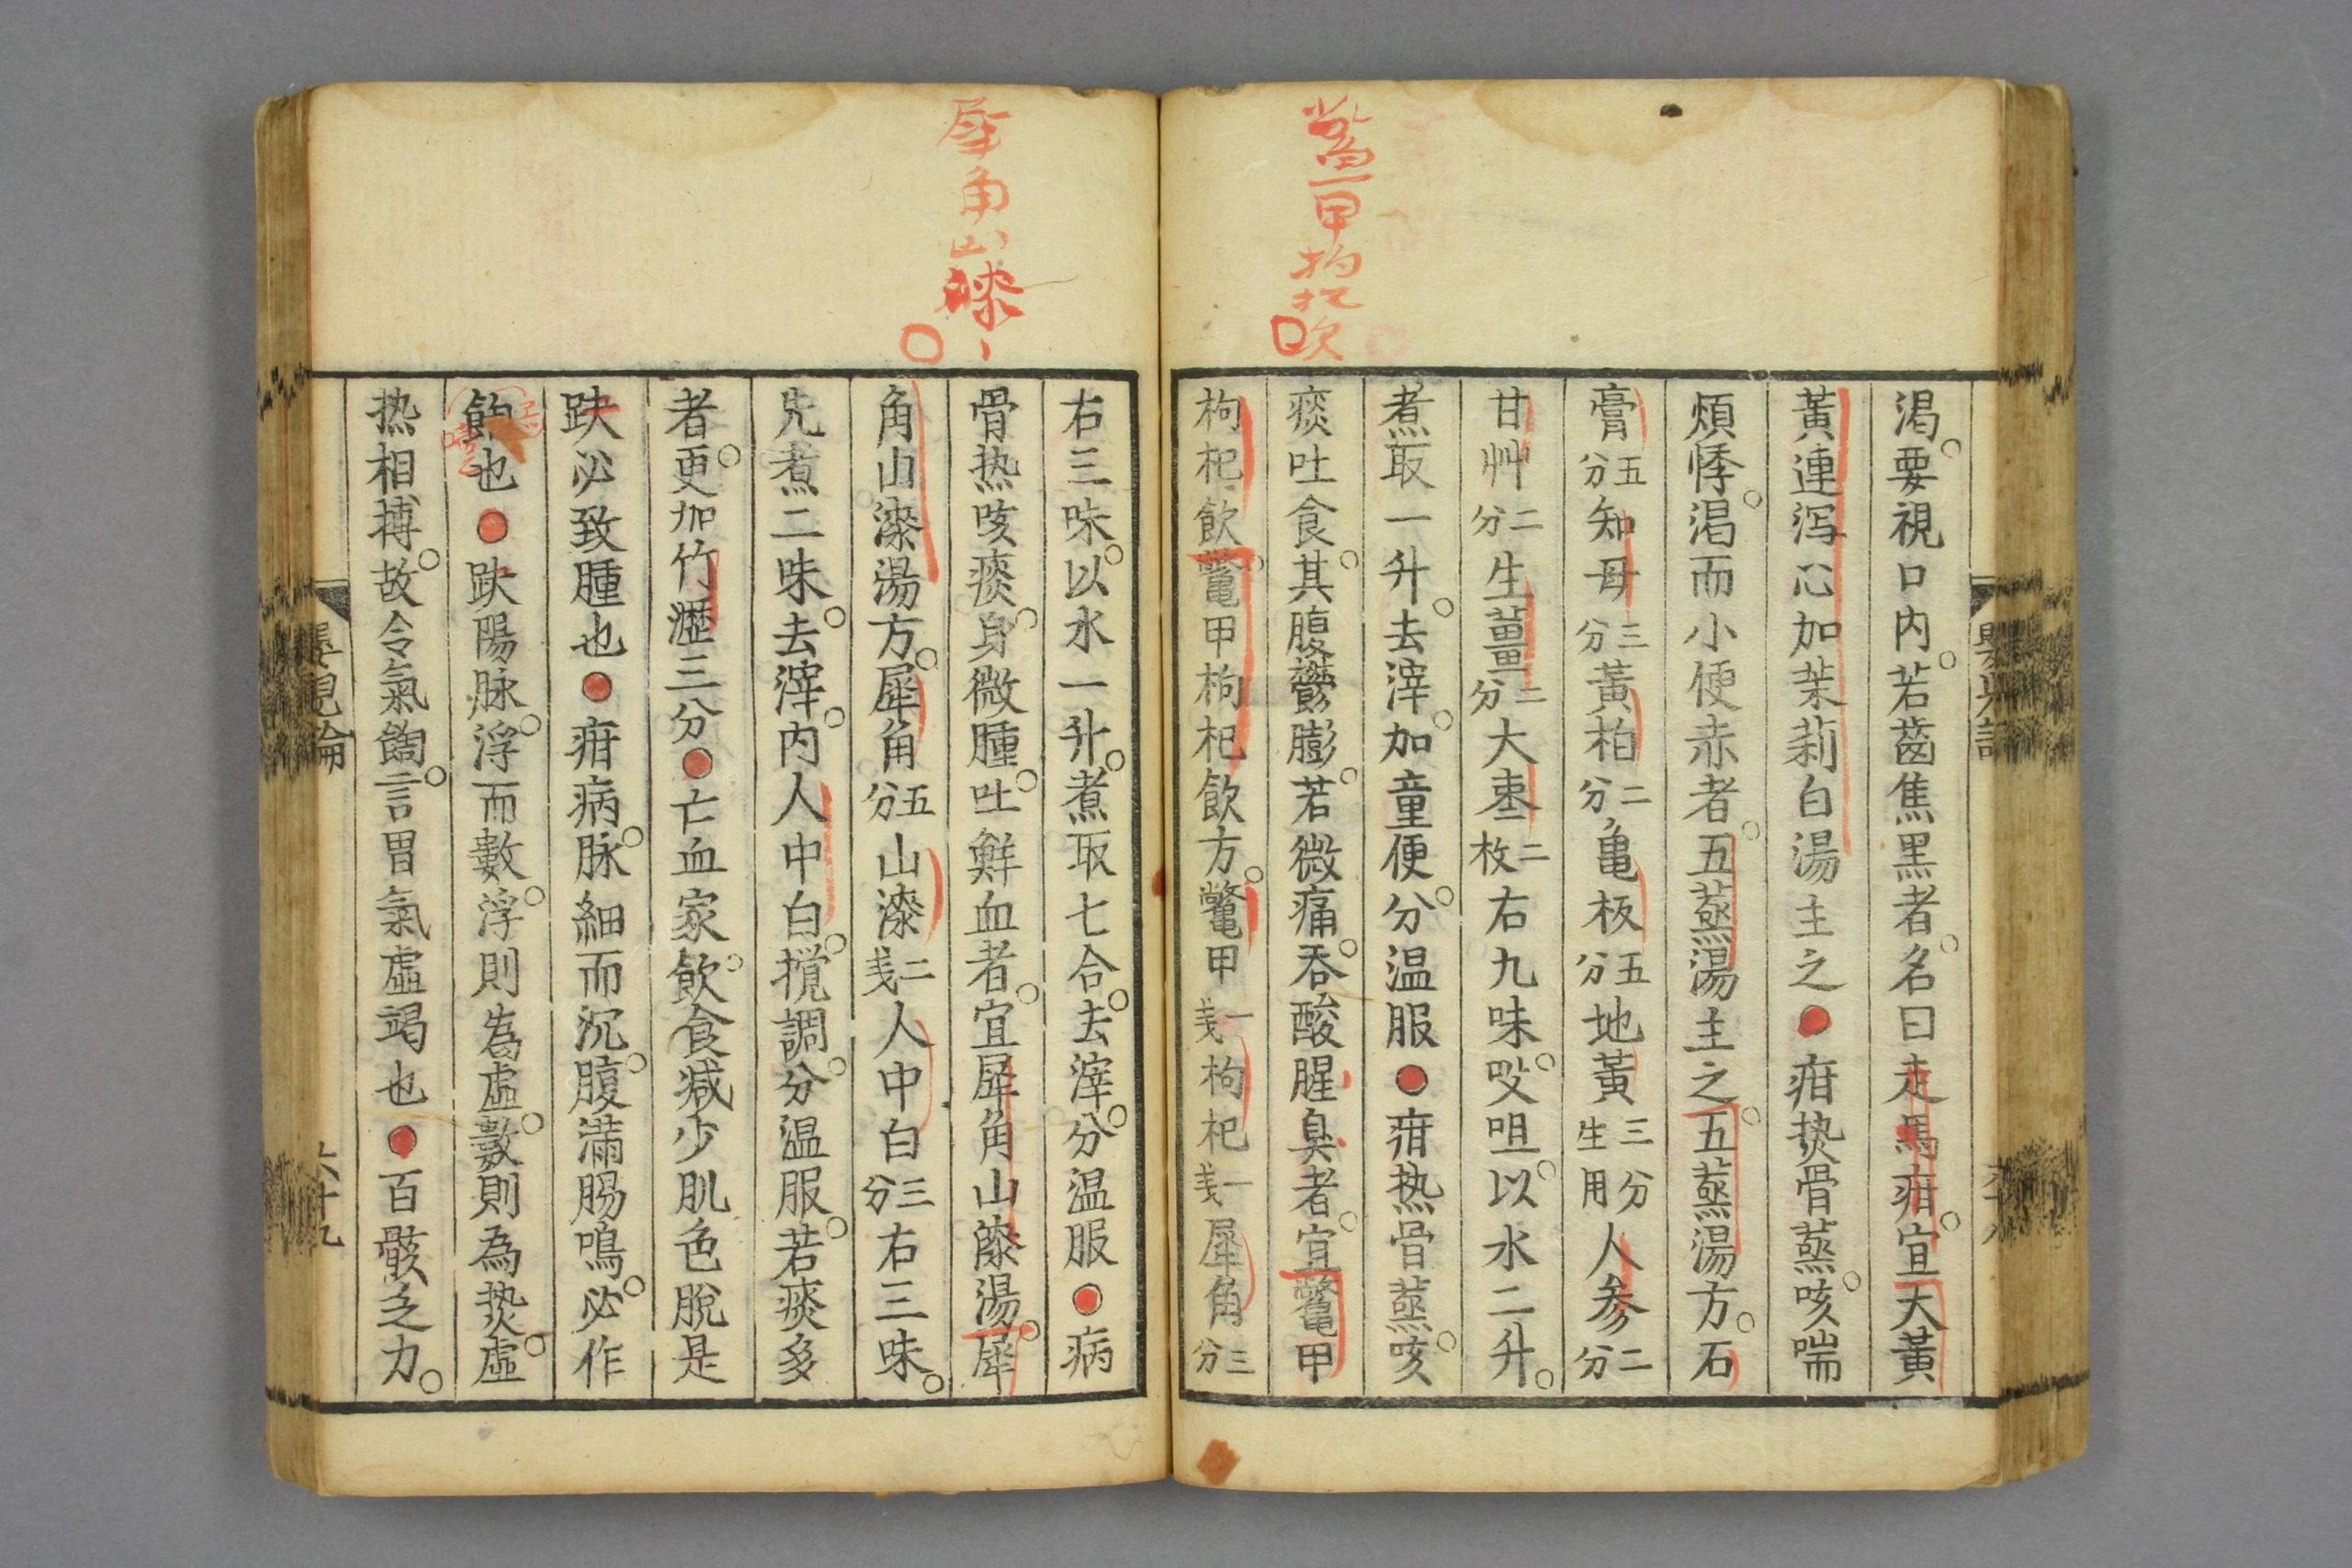 鱉甲枸杞飲
渴要視口内若齒焦黒者名曰走馬疳宜大黃
黃連泻心加茉莉白湯主之●疳热骨蒸咳喘
煩悸渴而小便赤者五蒸湯主之五蒸湯方石
膏五分知母三分黃柏二分亀板五分地黃三分生用人参二分
甘艸二分生薑二分大枣二枚右九味㕮咀以水二升
煮取一升去滓加童便分温服●疳热骨蒸咳
痰吐食其腹鬱膨若微痛呑酸腥臭者宜鼈甲
枸杞飲鼈甲枸杞飲方鼈甲一戋枸杞一戋犀角三分
犀角山漆
右三味以水一升煮取七合去滓分温服●病
骨热咳痰身微腫吐鮮血者宜犀角山漆湯犀
角山漆湯方犀角五分山漆二戋人中白三分右三味
先煮二味去滓内人中白搅調分温服若痰多
者更加竹瀝三分●亡血家飲食减少肌色脫是
趺必致腫也●疳病脉細而沉腹滿腸鳴必作
也●趺陽脉浮而數浮則為虛數則為热虛
热相搏故令氣餲言胃氣虛竭也●百骸乏力
六十九